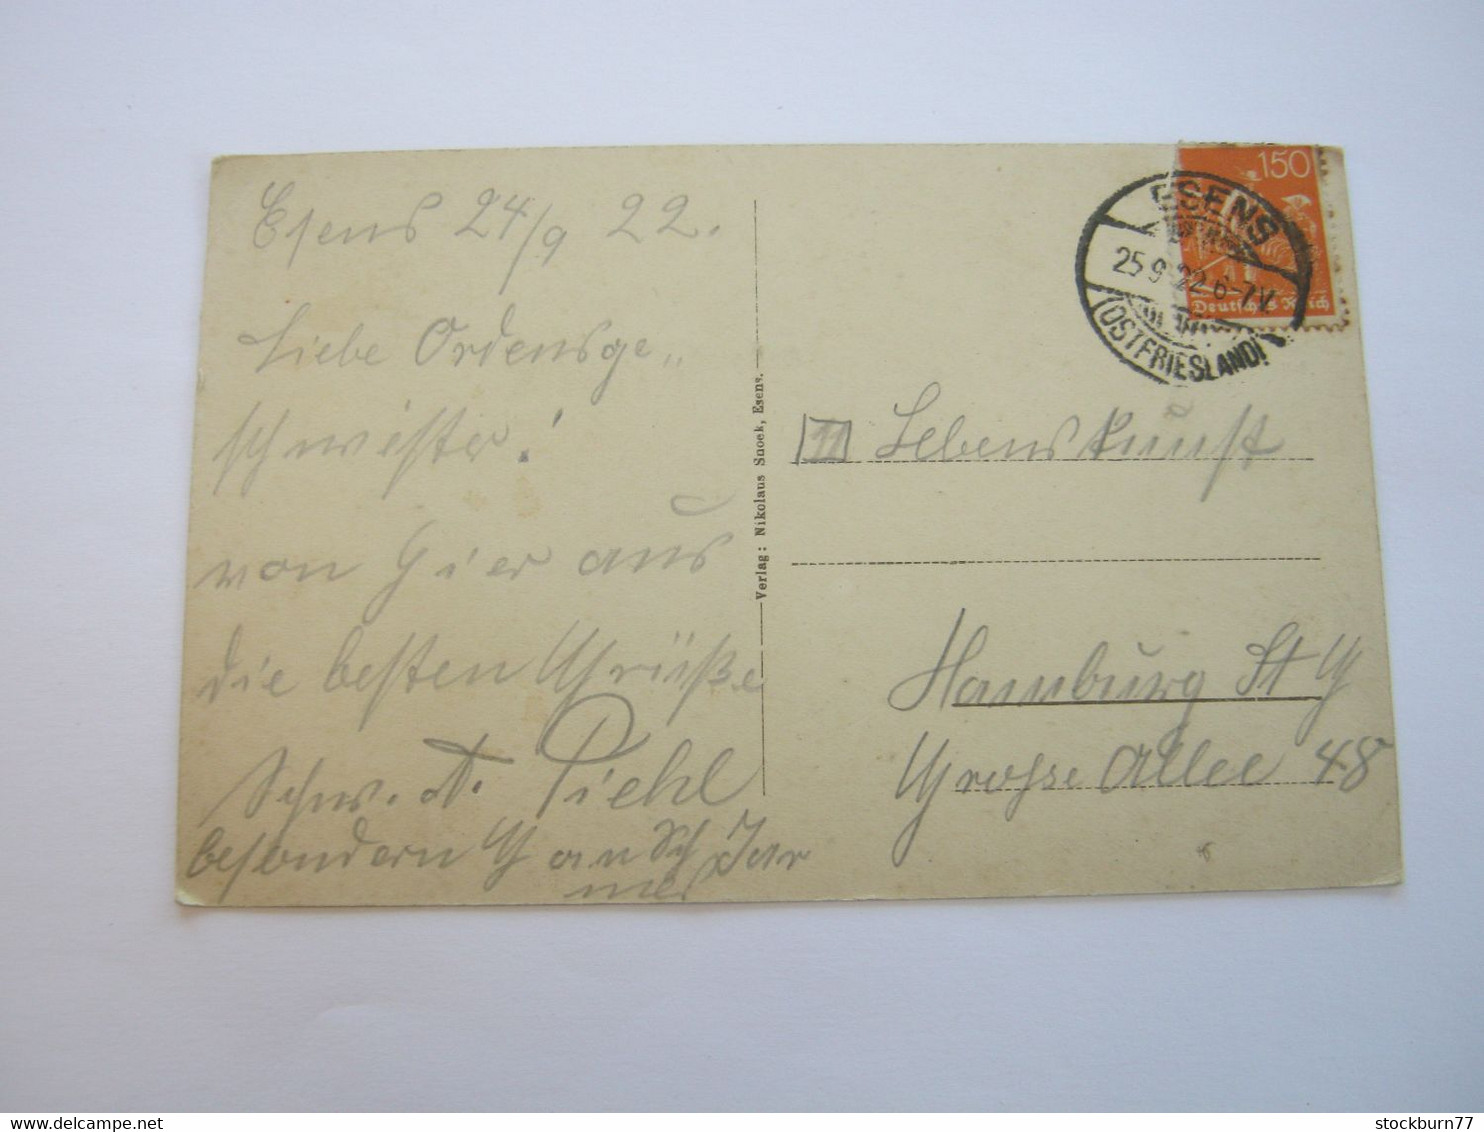 Esens 24/9 22.
Liebe Ordensge„
schwister!
von hier aus
die besten Grüße
Schw. A. Piehl
besondern G an Sch
Verlag: Nikolaus Snoek, Esens.
150
Deutsches Reich
ESENS
25 9 22 6-7V
(OSTFRIESLAND)
Lebenskunst
Hamburg St G
Grosse Allee 48
stockburn77